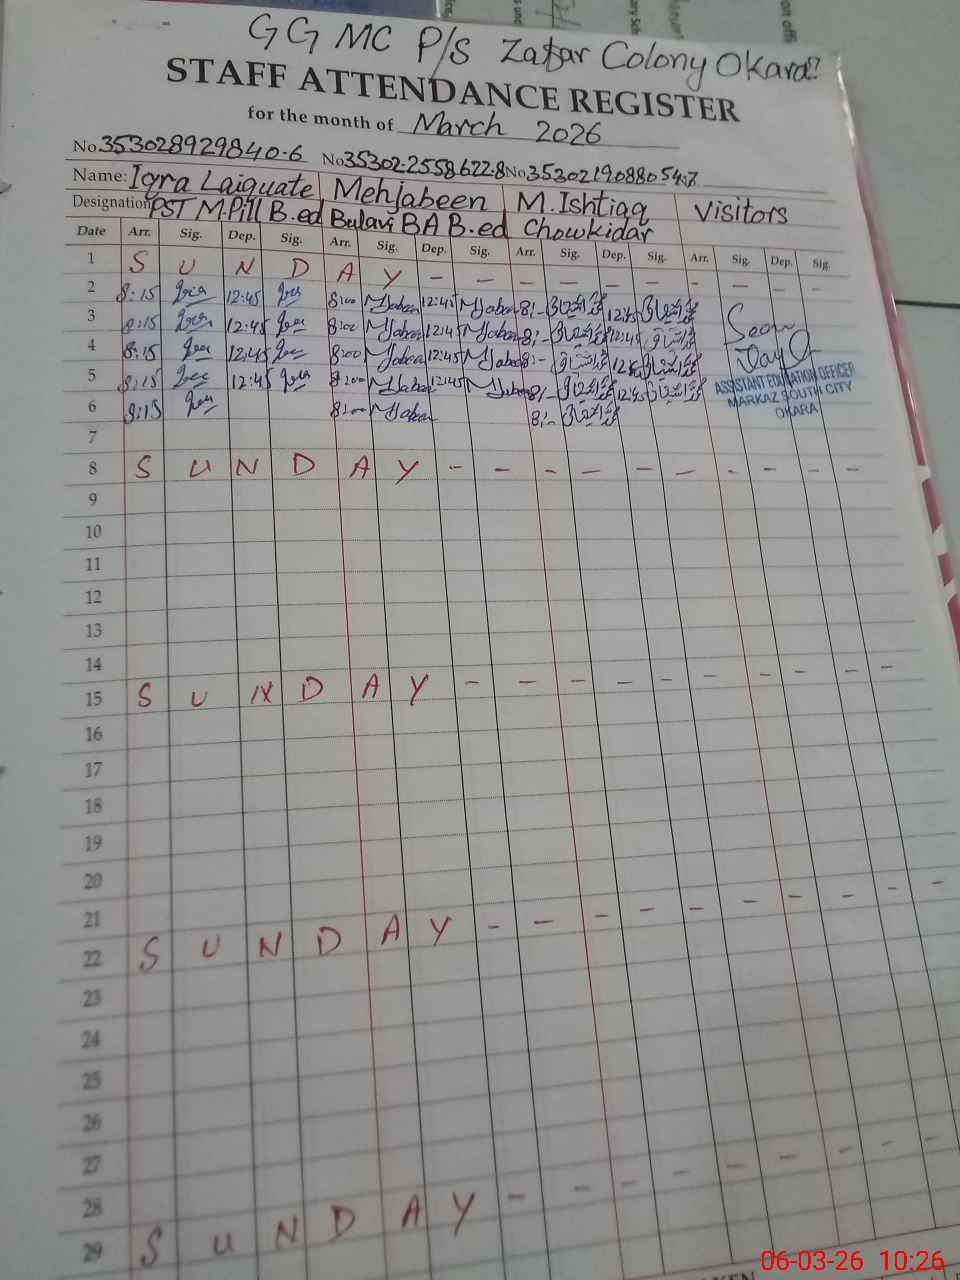 GGMC P/S Zafar Colony Okara
STAFF ATTENDANCE REGISTER
for the month of March 2026
No 353028929840-6 No 35302-2558622-8 No 3530219088054-7
Name: Iqra Laiquate Mehjabeen M.Ishtiaq Visitors
Designation PST M.Pill B.ed Bulavi BA B.ed Chowkidar
Date Arr. Sig. Dep. Sig. Arr. Sig. Dep. Sig. Arr. Sig. Dep. Sig. Arr. Sig. Dep. Sig.
1 S U N D A Y - - - - - - - - - -
2 8:15 12:45 8:00 Mjabeen 12:45 Mjabeen 8:- 12:45
3 8:15 12:45 8:00 Mjabeen 12:45 Mjabeen 8:- 12:45 Seen
4 8:15 12:45 8:00 Mjabeen 12:45 Mjabeen 8:- 12:45
5 8:15 12:45 8:00 Mjabeen 12:45 Mjabeen 8:- 12:45 ASSISTANT EDUCATION OFFICER
MARKAZ SOUTH CITY
6 8:15 8:00 Mjabeen 8:- OKARA
7
8 S U N D A Y - - - - - - - - - -
9
10
11
12
13
14
15 S U N D A Y - - - - - - - - - -
16
17
18
19
20
21
22 S U N D A Y - - - - - - - - - -
23
24
25
26
27
28
29 S U N D A Y - - - - - - - - -
06-03-26 10:26